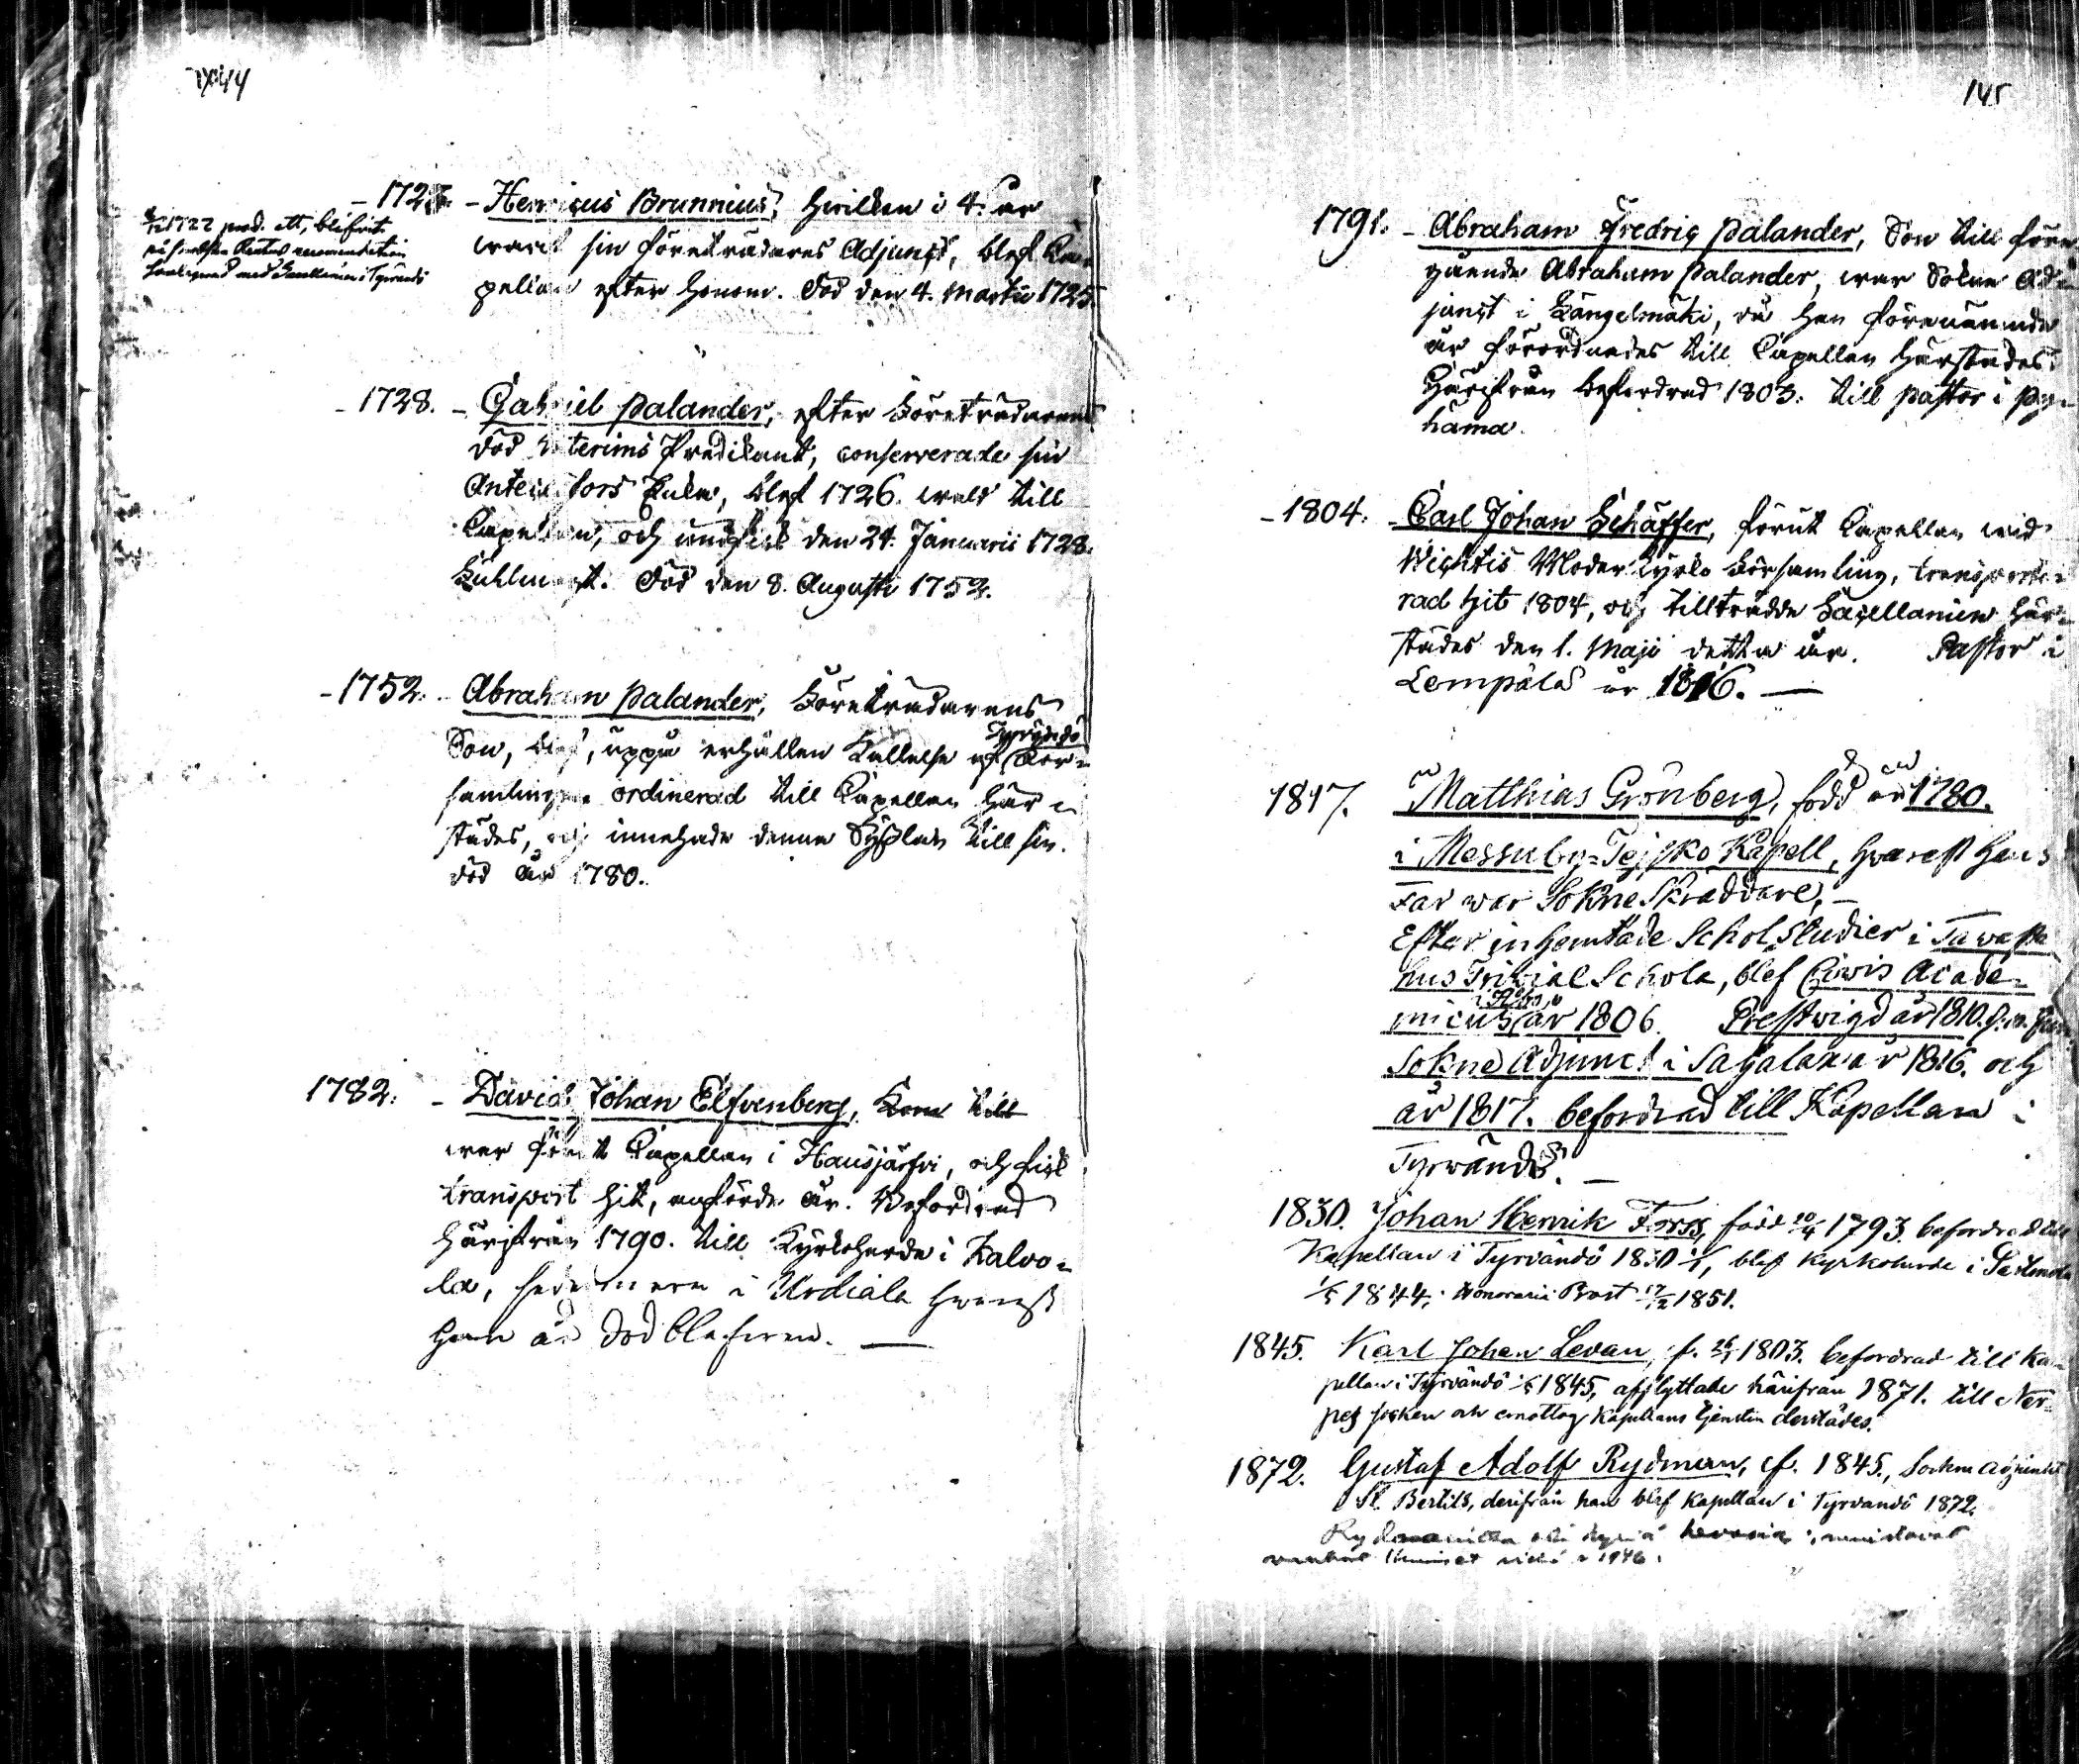 144
- 172 - Henricus Brunnius, hwilken i 4. år
warit sin företrädares Adjunct, blef Ca-
pellan efter honom. Död den 4. Martii 1725.
1722 prod. att, blifvit
- 1728. - Gabriel Palander, efter Företrädarens
död interims Predikant, conserverade sin
Antecessors Enka, blef 1726. wald till
Capellan, och undfick den 24. Januarii 1728.
Fullmagt. Död den 8. Augusti 1752.
- 1752. - Abraham Palander, Företrädarens
Son, blef, uppå erhållen Kallelse af Tyrvändö För-
samlingen ordinerad till Capellan här-
städes, och innehade denna Syßlan till sin
död år 1780.
1782. - David Johan Elfvenberg, Kom till
war förut Capellan i Hausjärfvi, och fick
transport hit, anförde år. Befordrad
härifrån 1790. till Kyrkoherde i Kalvo-
la, sedermera i Urdiala hwarest
han är död blefven. —
145
1791. - Abraham Fredric Palander, Son till före-
gående Abraham Palander, war Sokne Ad-
junct i Längelmäki, då han förenämnde
år förordnades till Capellan härstädes.
Härifrån befordrad 1803. till Pastor i Py-
hämä.
- 1804. Carl Johan Schäffer, förut Capellan wid
Wichtis Moder Kyrko Församling, transporte-
rad hit 1804, och tillträdde Sacellanien här-
städes den 1. Maji detta år. Pastor i
Lempälä år 1816. —
1817. Matthias Grönberg, född år 1780.
i Messuby-Teisko Kapell, hwarest hans
Far war Sokne Skräddare, —
Efter inhemtade Schol Studier i Tawaste-
hus Trivial Schola, blef Civis Acade-
micus i Åbo år 1806. Prestvigd år 1810.
Sokne Adjunct i Sahalax år 1816. och
år 1817. befordrad till Kapellan i
Tyrwändö. —
1830. Johan Henrik Forss, född 1793. befordrad till
Kapellan i Tyrvändö 1830 1/5, blef Kyrkoherde i
1/5 1844, Honorarie Prost 17/12 1851.
1845. Karl Johan Levan, f. 1803. befordrad till Ka-
pellan i Tyrvändö 1/5 1845, afflyttade härifrån 1871. till Ner-
pes socken och emottog Kapellans tjensten derstädes.
1872. Gustaf Adolf Rydman, f. 1845., Sockne adjunct
St. Bertils, derifrån han blef Kapellan i Tyrvändö 1872.